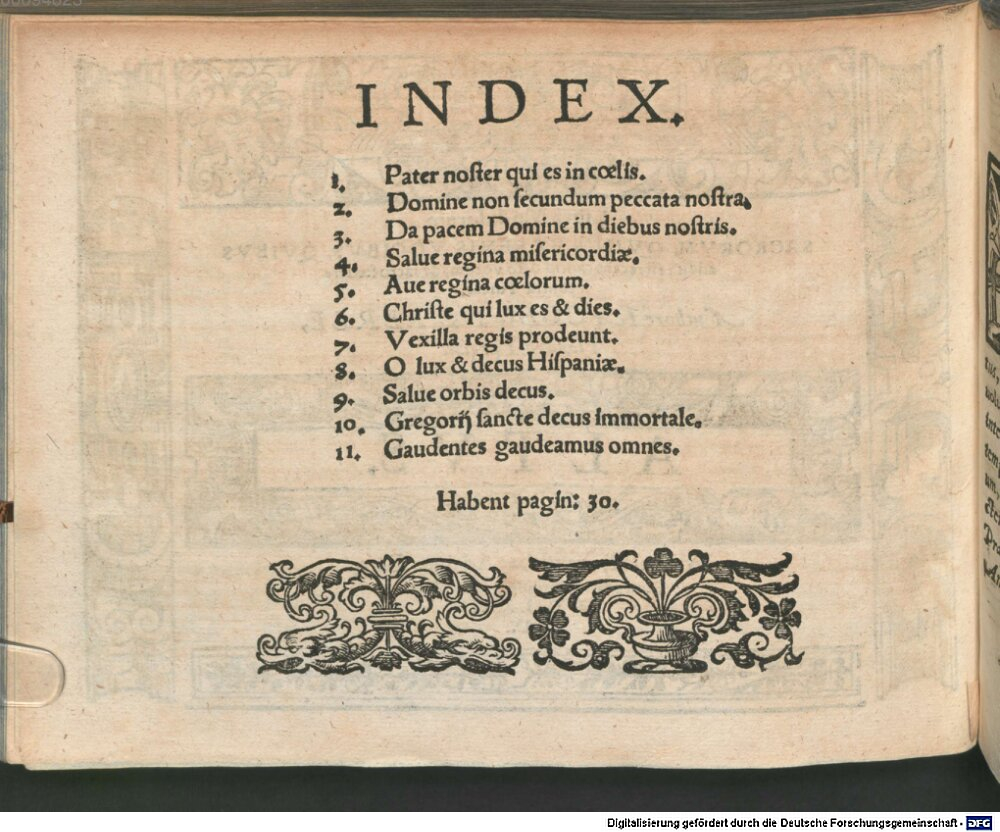 INDEX.
1. Pater noſter qui es in cœlis.
2. Domine non ſecundum peccata noſtra.
3. Da pacem Domine in diebus noſtris.
4. Salue regina miſericordiæ.
5. Aue regina cœlorum.
6. Chriſte qui lux es & dies.
7. Vexilla regis prodeunt.
8. O lux & decus Hiſpaniæ.
9. Salue orbis decus.
10. Gregorij ſancte decus immortale.
11. Gaudentes gaudeamus omnes.
Habent pagin: 30.
Digitalisierung gefördert durch die Deutsche Forschungsgemeinschaft - DFG